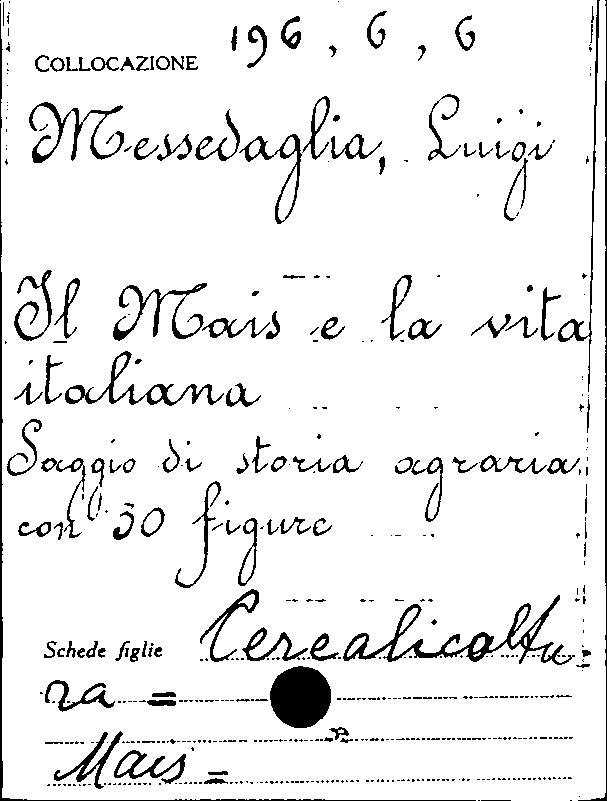 COLLOCAZIONE 196, 6, 6
Messedaglia, Luigi
Il Mais e la vita
italiana
Saggio di storia agraria
con 30 figure
Schede figlie Cerealicoltu-
ra =
Mais =